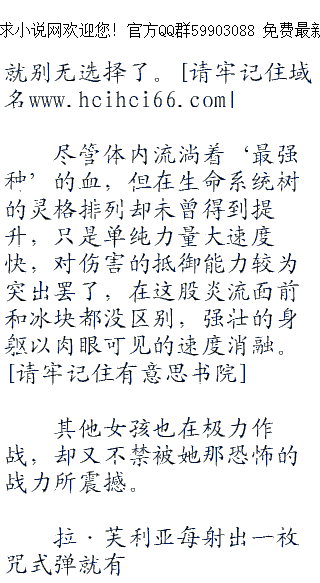 求小说网欢迎您！官方QQ群59903088 免费最新
就别无选择了。[请牢记住域
名www.hcihci66.com|
尽管体内流淌着‘最强
种’的血，但在生命系统树
的灵格排列却未曾得到提
升，只是单纯力量大速度
快，对伤害的抵御能力较为
突出罢了，在这股炎流面前
和冰块都没区别，强壮的身
躯以肉眼可见的速度消融。
[请牢记住有意思书院]
其他女孩也在极力作
战，却又不禁被她那恐怖的
战力所震撼。
拉·芙利亚每射出一枚
咒式弹就有